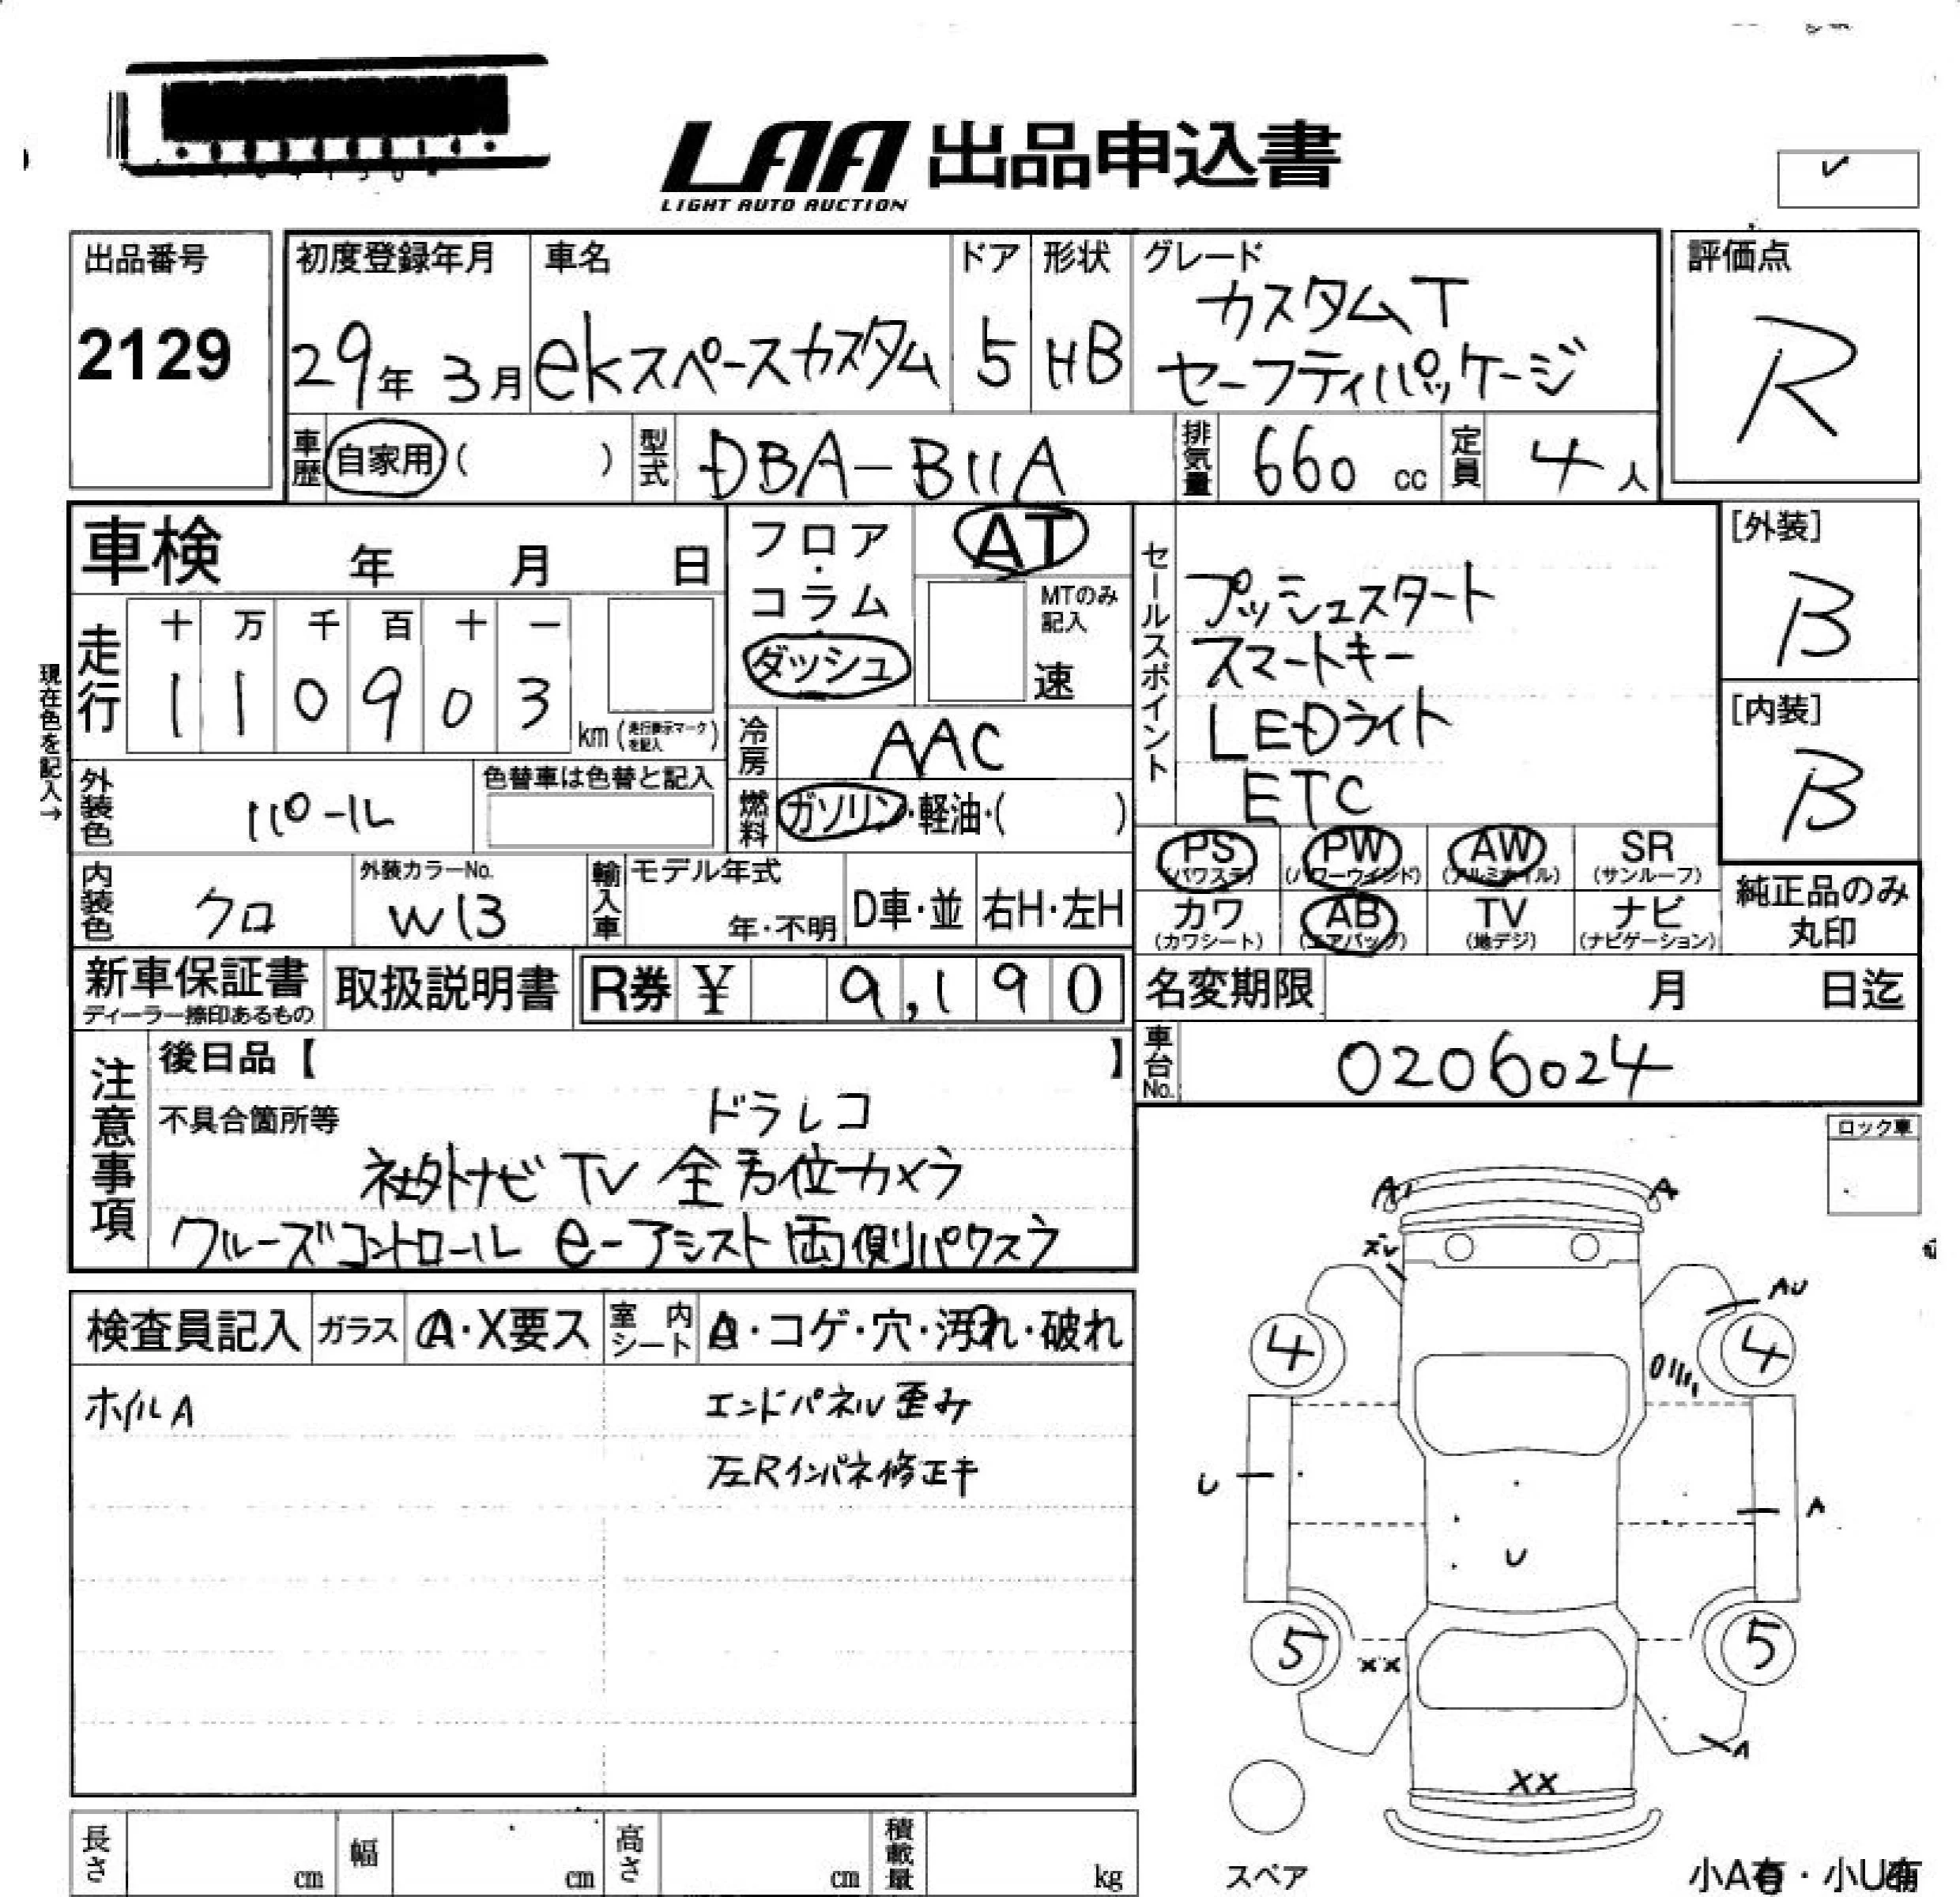 LAA 出品申込書
LIGHT AUTO AUCTION
✓
出品番号
2129
初度登録年月
29年 3月
車名
ekスペースカスタム
ドア
5
形状
HB
グレード
カスタムT
セーフティパッケージ
評価点
R
車歴 自家用 ( )
型式 DBA-B11A
排気量 660 cc
定員 4人
車検 年 月 日
フロア・コラム・ダッシュ
AT
MTのみ記入
速
走行
十 万 千 百 十 一
1 1 0 9 0 3
km (走行表示マークを記入)
現在色を記入→
冷房 AAC
燃料 ガソリン・軽油・( )
外装色 パール
色替車は色替と記入
内装色 クロ
外装カラーNo.
W13
輸入車
モデル年式
年・不明
D車・並
右H・左H
セールスポイント
プッシュスタート
スマートキー
LEDライト
ETC
[外装]
B
[内装]
B
PS (パワステ)
PW (パワーウインド)
AW (アルミホイル)
SR (サンルーフ)
カワ (カワシート)
AB (エアバッグ)
TV (地デジ)
ナビ (ナビゲーション)
純正品のみ丸印
新車保証書
ディーラー捺印あるもの
取扱説明書
R券 ¥ 9,190
名変期限 月 日迄
車台No. 0206024
注意事項
後日品【 】
不具合箇所等
ドラレコ
社外ナビ TV 全方位カメラ
クルーズコントロール e-アシスト 両側パワスラ
ロック車
検査員記入
ガラス A・X要ス
室内シート A・コゲ・穴・汚れ・破れ
ホイルA
エンドパネル歪み
左Rインパネ修正キ
A
ズレ
AU
4
4
U
A
U
5
5
XX
A
XX
スペア
小A有・小U有
長さ cm
幅 cm
高さ cm
積載量 kg